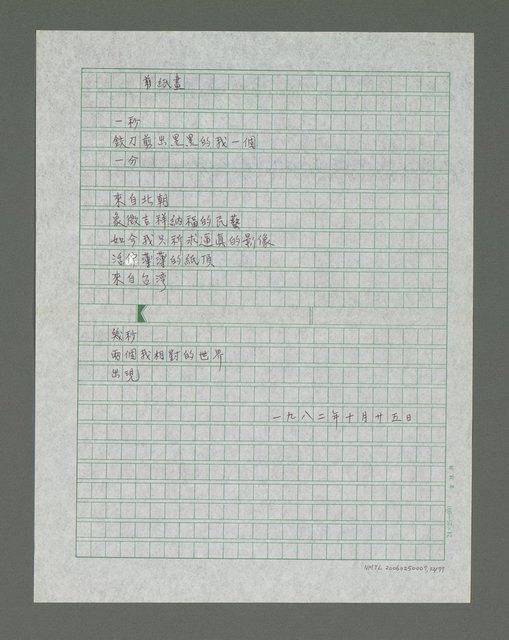 剪紙畫
一秒
鉸刀剪出黑黑的我一個
一分
來自北朝
象徵吉祥納福的民藝
如今我只祈求逼真的影像
活在薄薄的紙頂
來自台灣
幾秒
兩個我相對的世界
出現
一九八二年十月廿五日
NMTL 20060250007